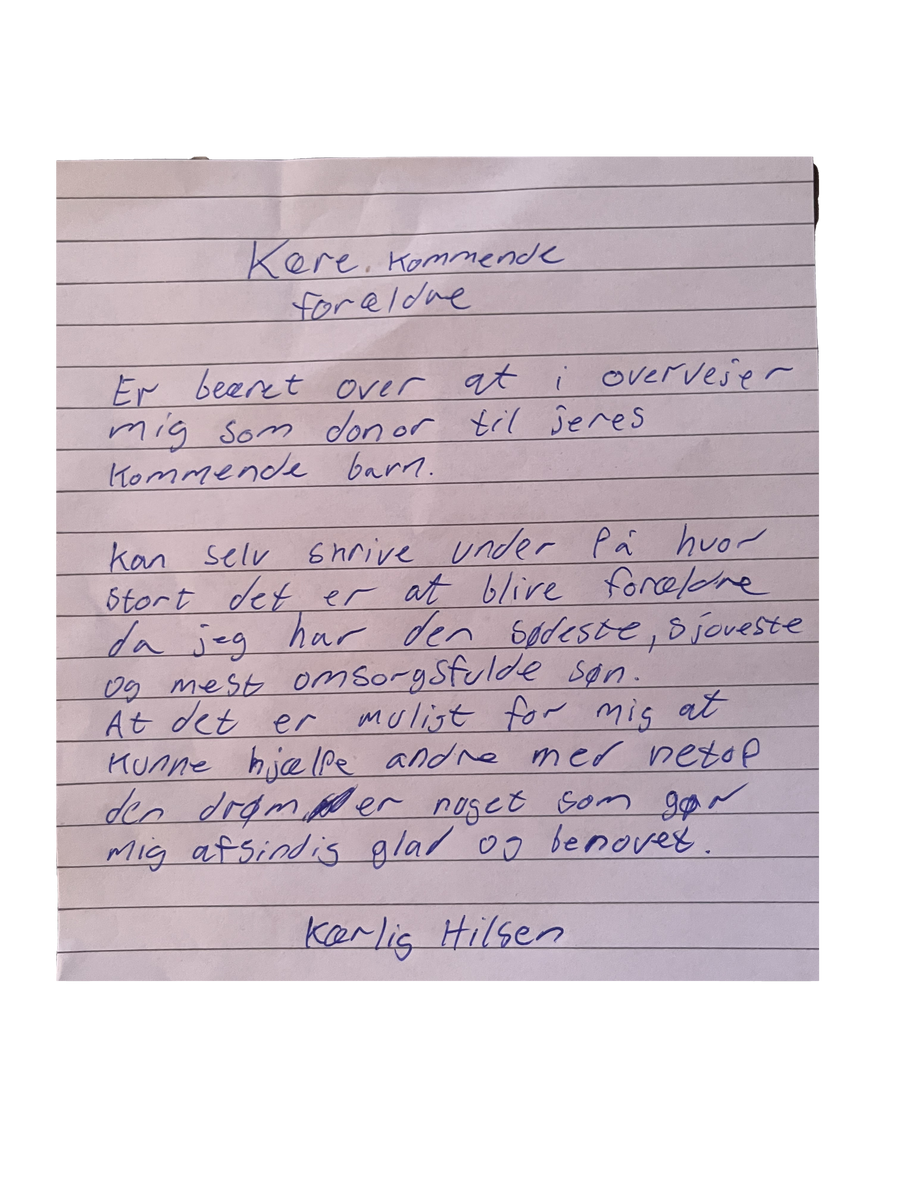 Kære. Kommende
forældre
Er beæret over at i overvejer
mig som donor til jeres
Kommende barn.
Kan selv skrive under På hvor
stort det er at blive forældre
da jeg har den sødeste, sjoveste
og mest omsorgsfulde søn.
At det er muligt for mig at
Kunne hjælpe andre med netop
den drøm er noget som gør
mig afsindig glad og benovet.
Kærlig Hilsen